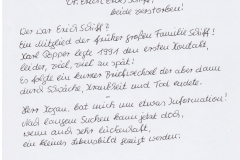 Dr. Erich Erwin Schiff,
beide verstorben!
Wer war Erich Schiff?
Ein Mitglied der früher großen Familie Schiff!
Karl Popper legte 1991 den ersten Kontakt,
leider, viel, viel zu spät!
Es folgte ein kurzer Briefwechsel der aber dann
durch Schwäche, Krankheit und Tod endete.
Herr Kogan, bat mich um etwas Information!
Nach langem Suchen kann jetzt doch,
wenn auch sehr lückenhaft,
ein kleines Lebensbild gezeigt werden: